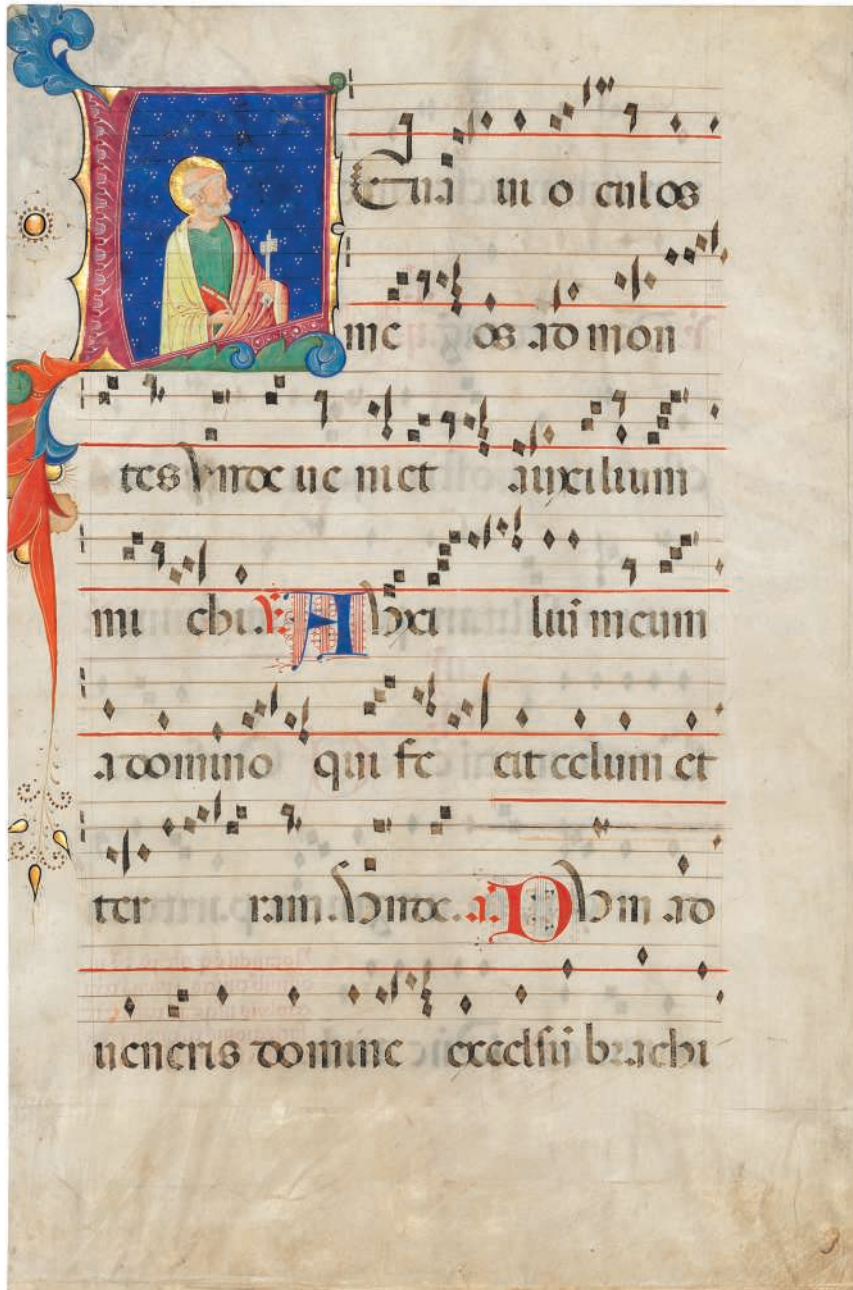 Leuaui oculos
meos ad mon
tes Vnde ueniet auxilium
michi. V. Auxiliuz meum
a domino qui fecit celum et
terram. Vnde. a. Dum ad
ueneris domine excelsuz brachi